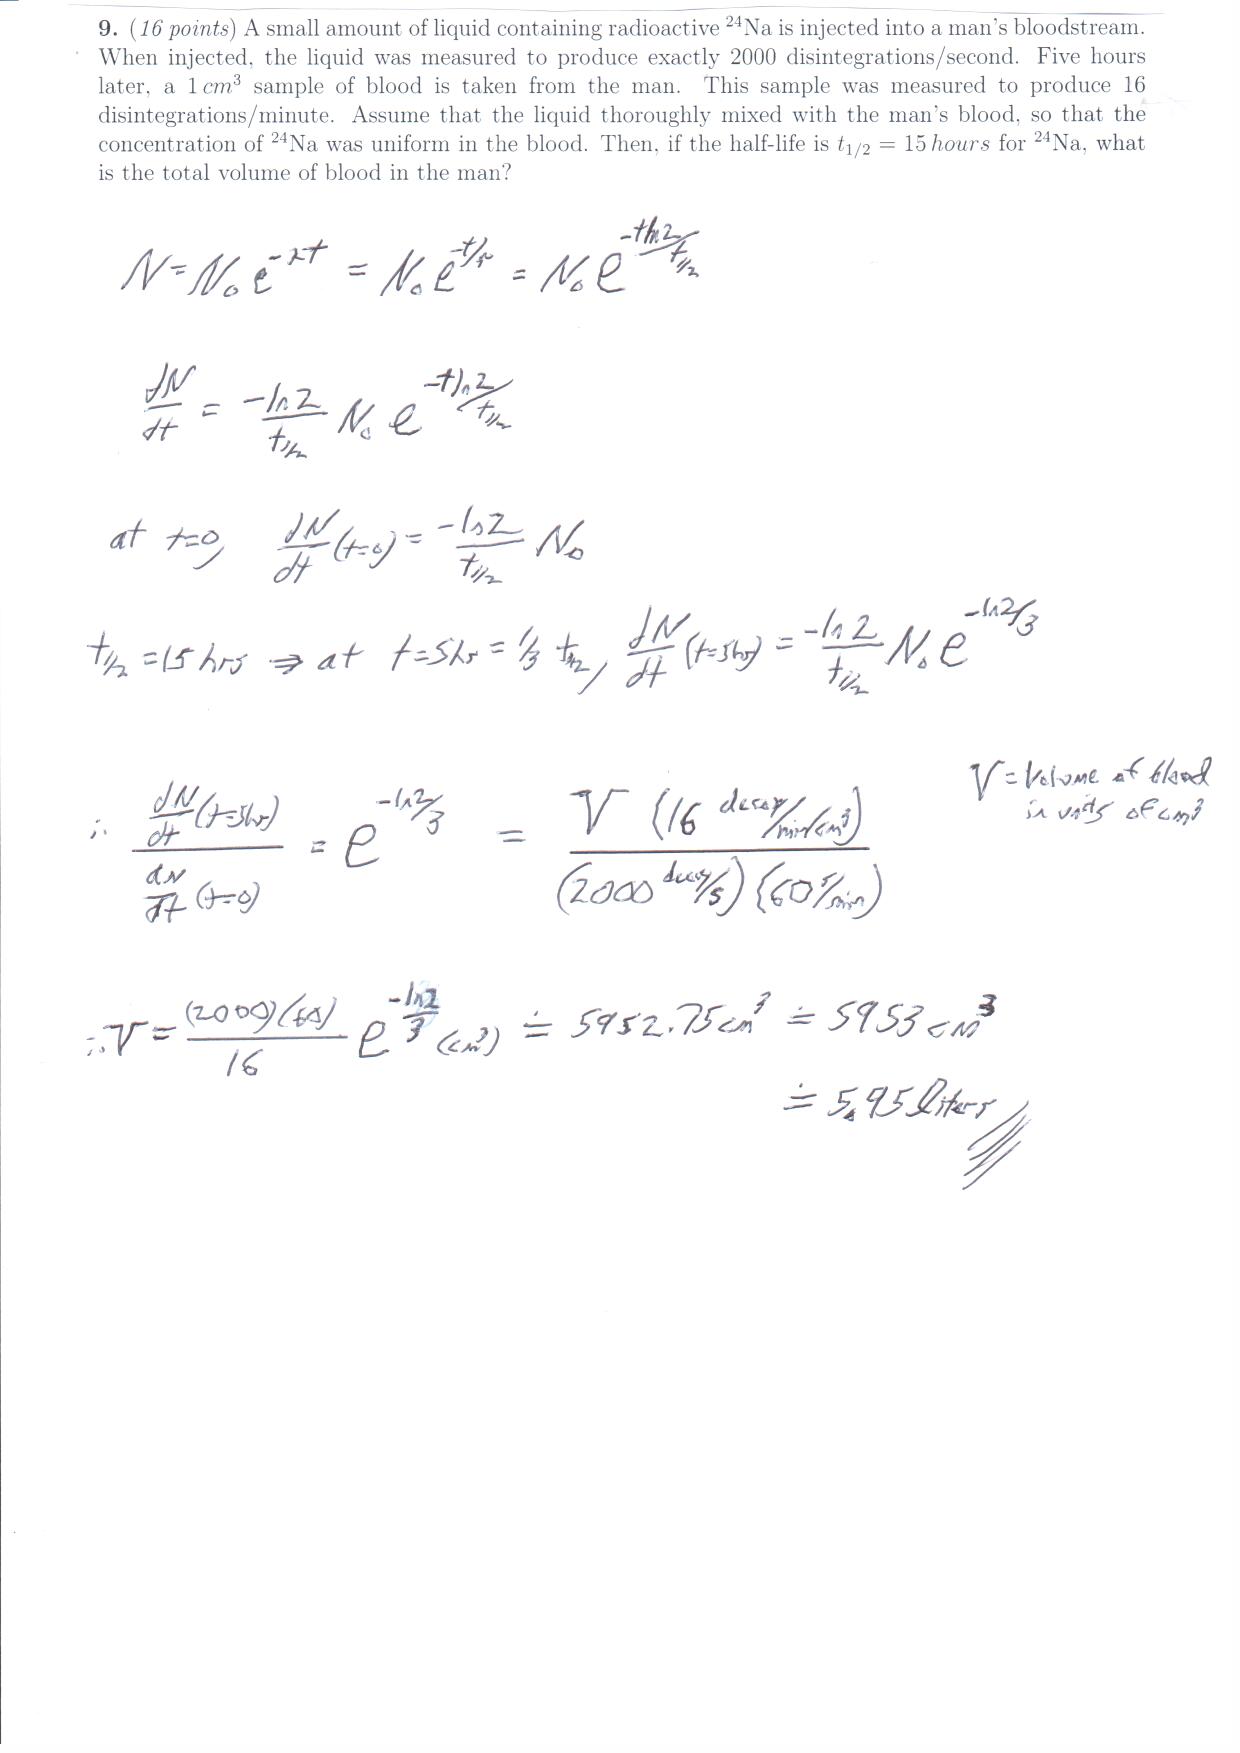 9. (16 points) A small amount of liquid containing radioactive ²⁴Na is injected into a man's bloodstream.
When injected, the liquid was measured to produce exactly 2000 disintegrations/second. Five hours
later, a 1 cm³ sample of blood is taken from the man. This sample was measured to produce 16
disintegrations/minute. Assume that the liquid thoroughly mixed with the man's blood, so that the
concentration of ²⁴Na was uniform in the blood. Then, if the half-life is t_{1/2} = 15 hours for ²⁴Na, what
is the total volume of blood in the man?
N = N₀ e^{-λt} = N₀ e^{-t/τ} = N₀ e^{-t ln 2/t_{1/2}}
dN/dt = -ln 2/t_{1/2} N₀ e^{-t ln 2/t_{1/2}}
at t=0, dN/dt (t=0) = -ln 2/t_{1/2} N₀
t_{1/2} = 15 hrs ⇒ at t=5hr = 1/3 t_{1/2}, dN/dt (t=5hr) = -ln 2/t_{1/2} N₀ e^{-ln 2/3}
V = Volume of blood
in units of cm³
∴ dN/dt (t=5hr) / dN/dt (t=0) = e^{-ln 2/3} = V (16 decay/min/cm³) / (2000 decay/s) (60 s/min)
∴ V = (2000)(60)/16 e^{-ln 2/3} (cm³) ≐ 5952.75 cm³ ≐ 5953 cm³
≐ 5.95 liters